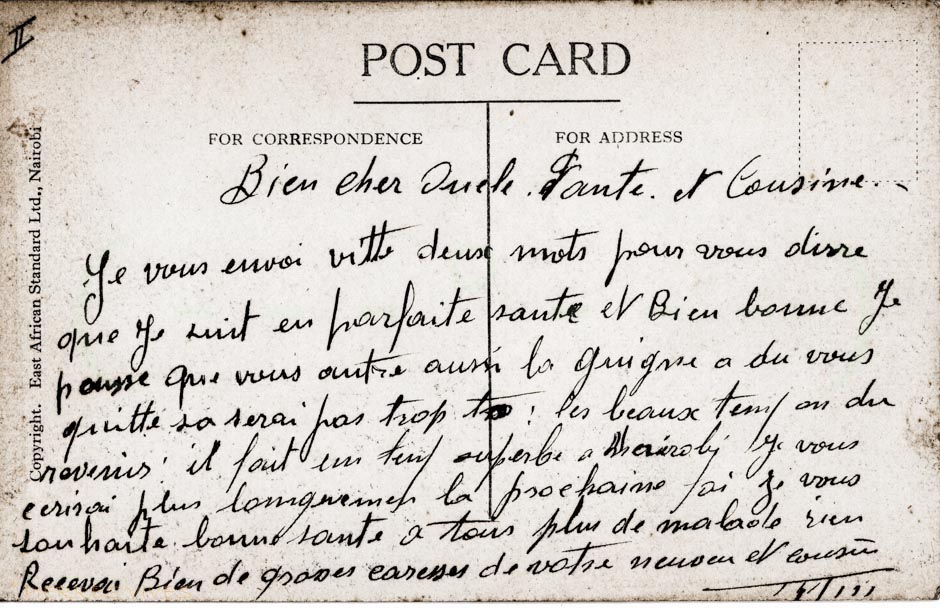 II
POST CARD
FOR CORRESPONDENCE
FOR ADDRESS
Copyright. East African Standard Ltd., Nairobi
Bien cher Oncle. Tante. et Cousine.
Je vous envoi vitte deux mots pour vous dirre
que Je suit en parfaite sante et Bien bonne Je
pensse que vous autre aussi la guigne a du vous
quitte sa serai pas trop to : les beaux temp on du
revenir il fait un temp superbe a Nairobi Je vous
ecrirai plus longuement la prochaine foi Je vous
souhaite bonne sante a tous plus de malade rien
Recevai Bien de grosses caresses de votre neuveu et cousin